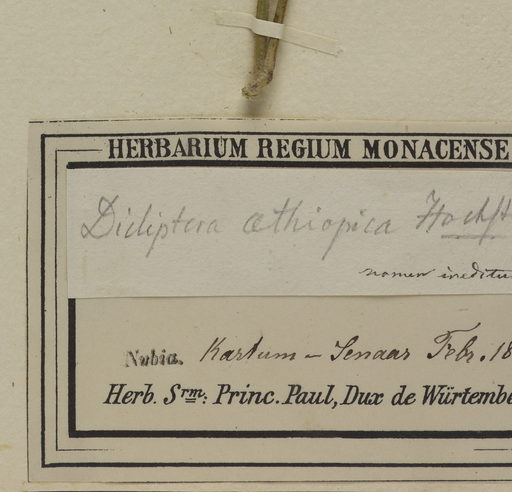 HERBARIUM REGIUM MONACENSE
Dicliptera æthiopica Hochst
nomen ineditu
Nubia. Kartum – Senaar Febr. 18
Herb. Srm: Princ. Paul, Dux de Würtembe